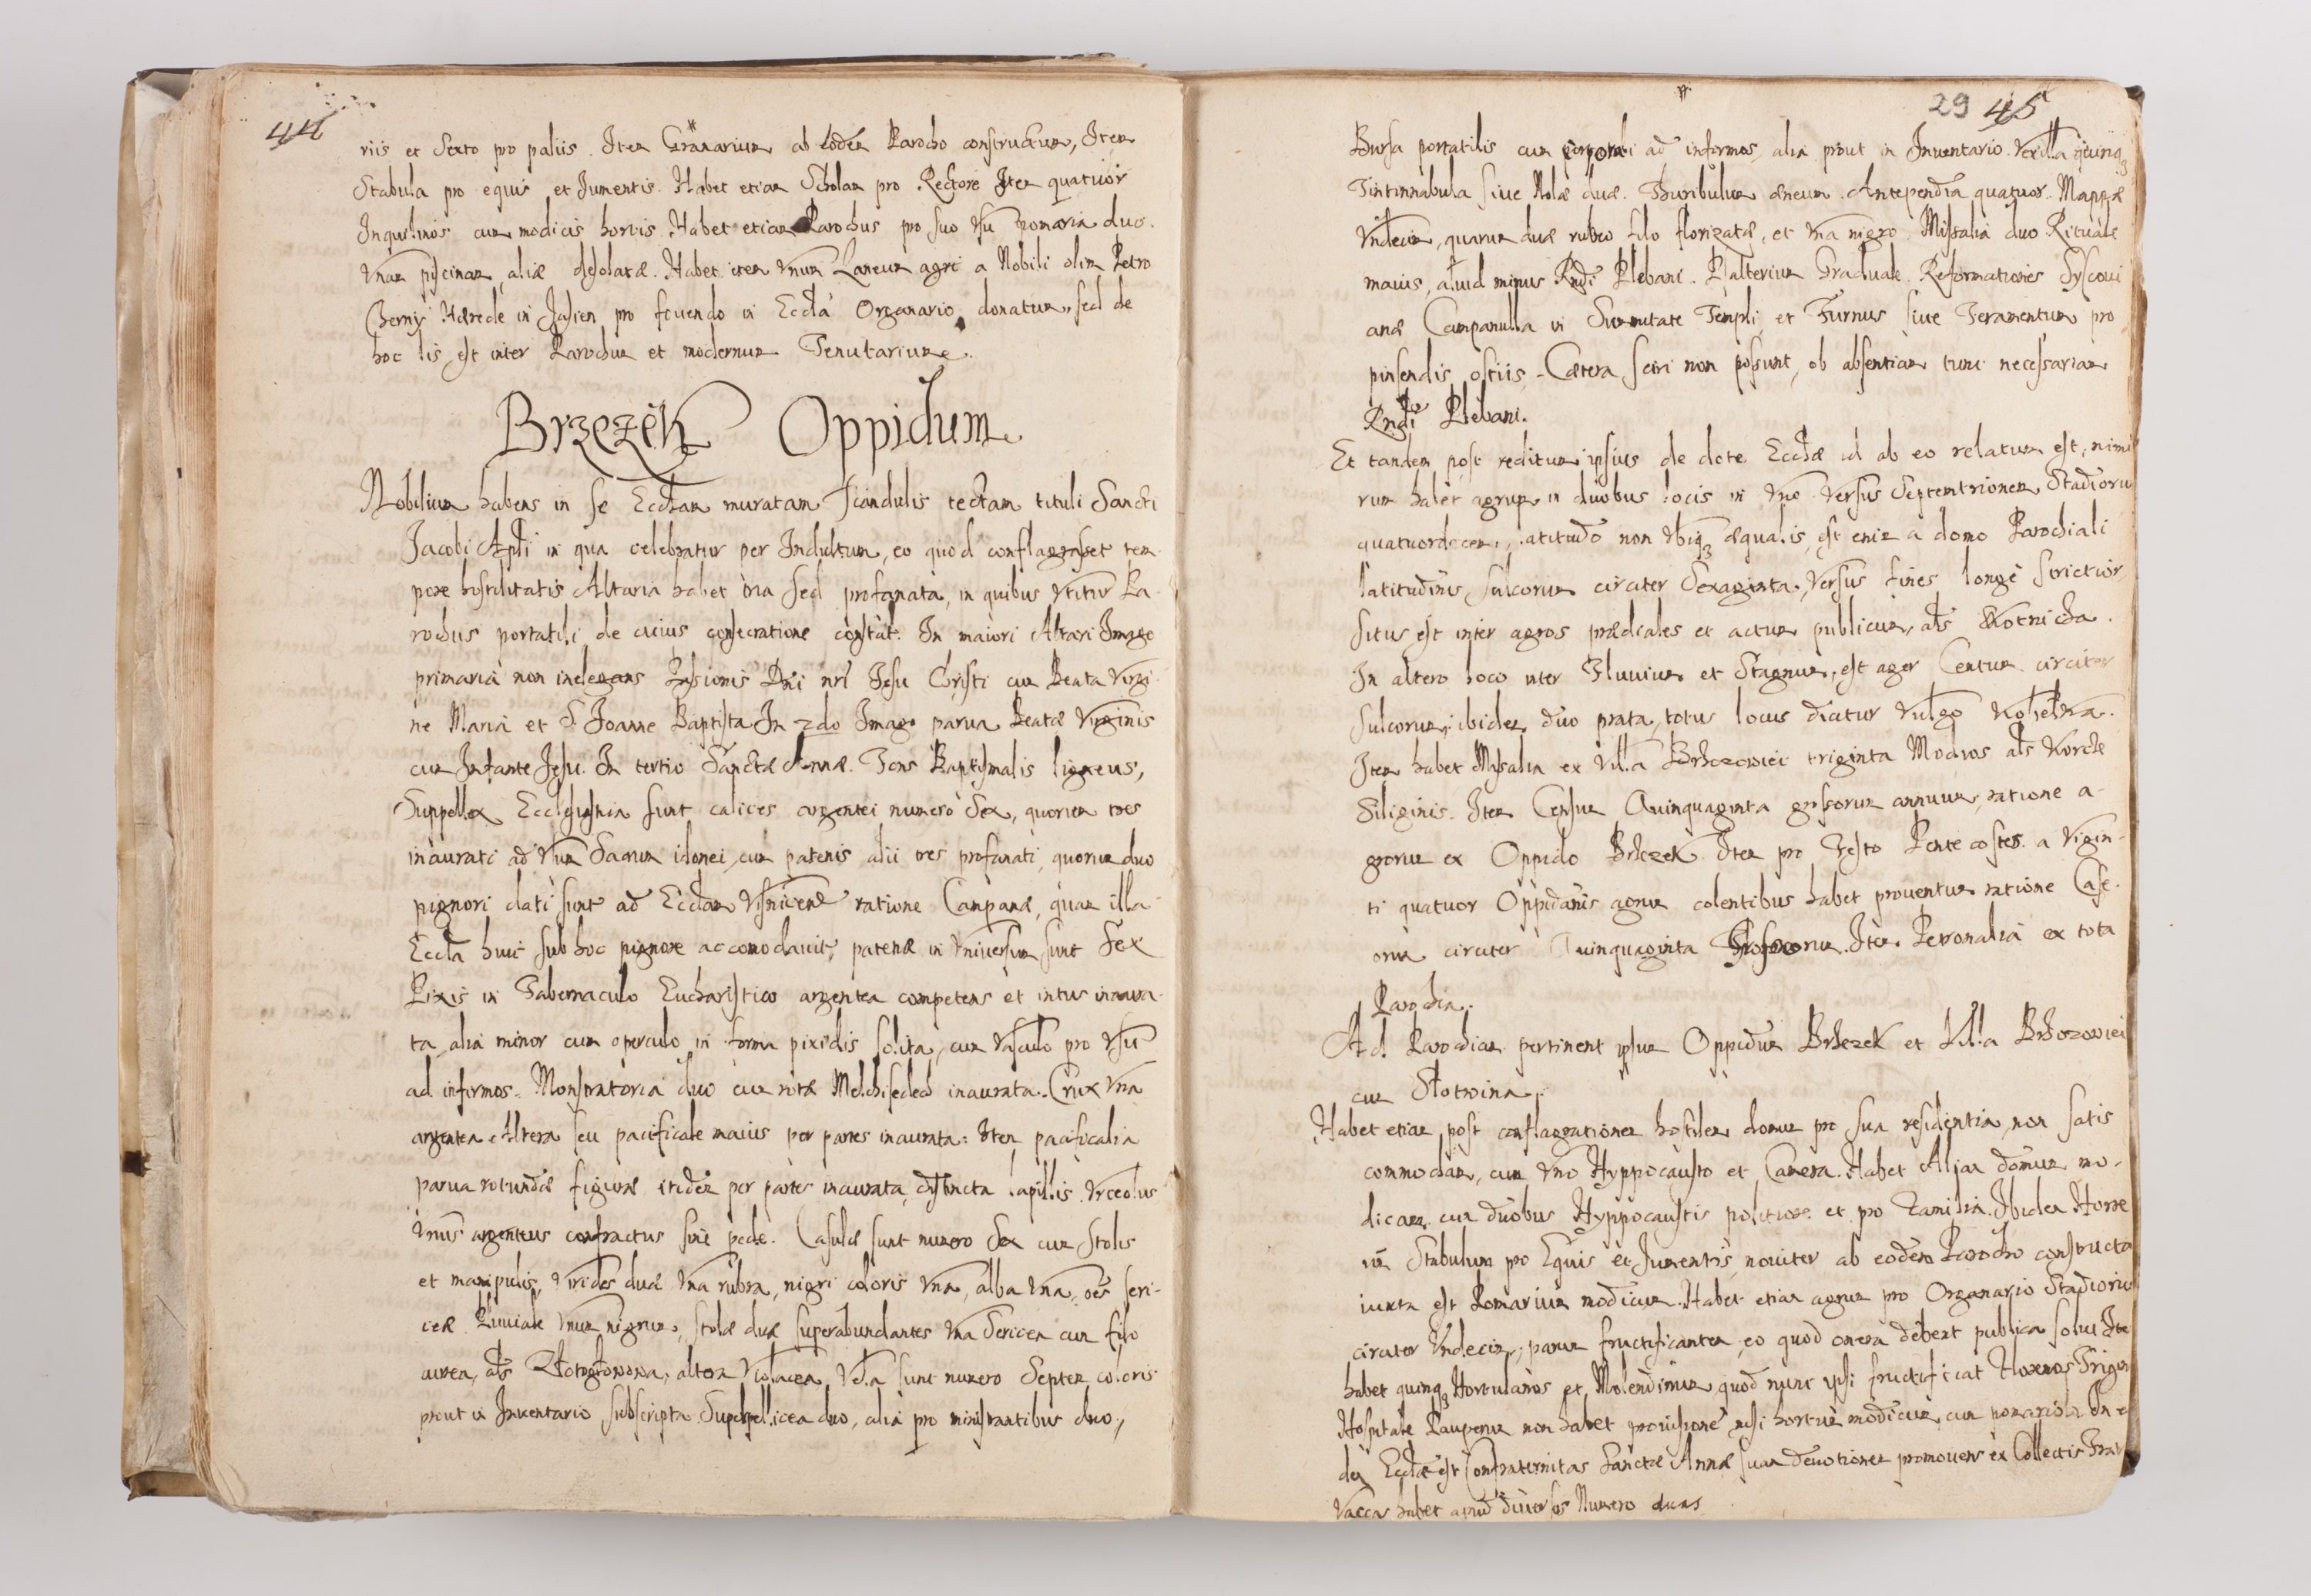 44
riis et Sexto pro paliis. Item Granarium ab eodem Parocho constructum, Item
Stabula pro equis et Jumentis. Habet etiam Scholam pro Rectore Item quatuor
Inquilinos cum modicis hortis. Habet etiam Parochus pro suo Vsu pomaria duo.
Vnam piscinam, aliæ desolatæ. Habet item Vnum Laneum agri a Nobili olim Petro
Czerny Hærede in Jasien pro fouendo in Eccła Organario donatum, sed de
hoc lis est inter Parochum et modernum Tenutarium.
Brzezek Oppidum
Nobilium habens in se Eccłam muratam Scandulis tectam tituli Sancti
Jacobi Apłi in qua celebratur per Indultum, eo quod conflagrasset tem
pore hostilitatis Altaria habet tria sed profanata, in quibus Vtitur Pa
rochus portatili, de cuius consecratione constat. In maiori Altari Imago
primaria non inelegans Passionis Dni nri Jesu Cristi cum Beata Virgi
ne Maria et S Joanne Baptista In 2do Imago parua Beatæ Virginis
cum Infante Jesu. In tertio Sanctæ Annæ. Fons Baptismalis ligneus,
Suppellex sunt calices argentei numero Sex, quorum tres
inaurati ad Vsum Sacrum idonei cum patenis alii tres profanati, quorum duo
pignori dati sunt ad Eccłam Vsnicenę ratione Campanæ, quam illa
Eccła huic sub hoc pignore accomodauit, patenæ in Vniuersum sunt Sex
Pixis in Tabernaculo Eucharistico argentea competens et intus inaura
ta, alia minor cum operculo in forma pixidis solita, cum Vasculo pro Vsu
ad infirmos. Monstratoria duo cum rota Melchisedech inaurata. Crux Vna
argentea Altera seu pacificale maius per partes inaurata: Item pacificalia
parua rotundæ figuræ itidem per partes inaurata distincta lapillis. Vrceolus
Vnus argenteus confractus sine pede. Casulæ sunt numero Sex cum Stolis
et manipulis, Virides duæ Vna rubra, nigri coloris Vna, alba Vna, oēs seri-
ceæ. Pluuiale Vnum nigrum, stolæ duæ superabundantes Vna Sericea cum filo
aureo, ałs Złotogłowowa, altera Violacea, Vela sunt numero Septem coloris
prout in Inventario subscripta. Superpellicea duo, alia pro ministrantibus duo,
29 45
Bursa portatilis cum corporali ad infirmos, alia prout in Inuentario. Vexilla quinq3
Tintinnabula siue Nolæ duæ. Thuribulum æneum. Antependia quatuor. Mappæ
Vndecim, quarum duæ rubro filo florizatæ, et Vna nigro Missalia duo Rituale
maius, aliud minus Rndi Plebani. Psalterium Graduale. Reformationes Syscoui
anæ Campanulla in Summitate Templi, et Furnus siue Feramentum pro
pinsendis ostiis. Cætera sciri non possunt, ob absentiam tunc necessariam
Rndi Plebani.
Et tandem post reditum ipsius de dote Eccłæ id ab eo relatum est, nimi
rum habet agrum in duobus locis in Vno Versus Septemtrionem Stadiorū
quatuordecem, latitudo non Vbiq3 æqualis, est enim a domo Parochiali
latitudinis Sulcorum circiter Sexaginta, Versus fines longè strictior
situs est inter agros prædiales et actum publicum, ałs Kotnicha.
In altero loco inter Fluuium et Stagnum, est ager Centum circiter
Sulcorum, ibidem duo prata, totus locus dicitur Vulgo
Item habet Missalia ex Villa Brzozowiei triginta Modios ałs Korcze
Siliginis. Item Censum Quinquaginta grossorum annuum, ratione a-
grorum ex Oppido Brzezek Item pro Festo Pentecostes a Vigin-
ti quatuor Oppidanis agrum colentibus habet prouentum ratione Case-
orum circiter Quinquaginta Grossorum. Item Petronalia ex tota
Parochia.
Ad Parochiam pertinent ipsum Oppidum Brzezek et Villa Brzozowiei
cum Słotwina.
Habet etiam post conflagrationem hostilem domum pro sua residentia non satis
commodam, cum Vno Hyppocausto et Camera. Habet Aliam domum mo-
dicam cum duobus Hyppocaustis politiore et pro Familia. Ibidem Horre
um Stabulum pro Equis et Jumentis, nouiter ab eodem Parocho constructa
iuxta est Pomarium modicum. Habet etiam agrum pro Organario Stadiorum
circiter Vndecim, parum fructificantem, eo quod onera debeat publica solui Ite
habet quinq3 Hortulanos et Molendinum quod nunc ipsi fructificat Florenos Trigin
Hospitale Pauperum non habet prouisionē nisi hortum modicum cum pomariola In e
dem Eccła est Confraternitas Sanctæ Annæ suam deuotionem promouens ex Collectis Frat
Vaccas habet apud diuersos Numero duas